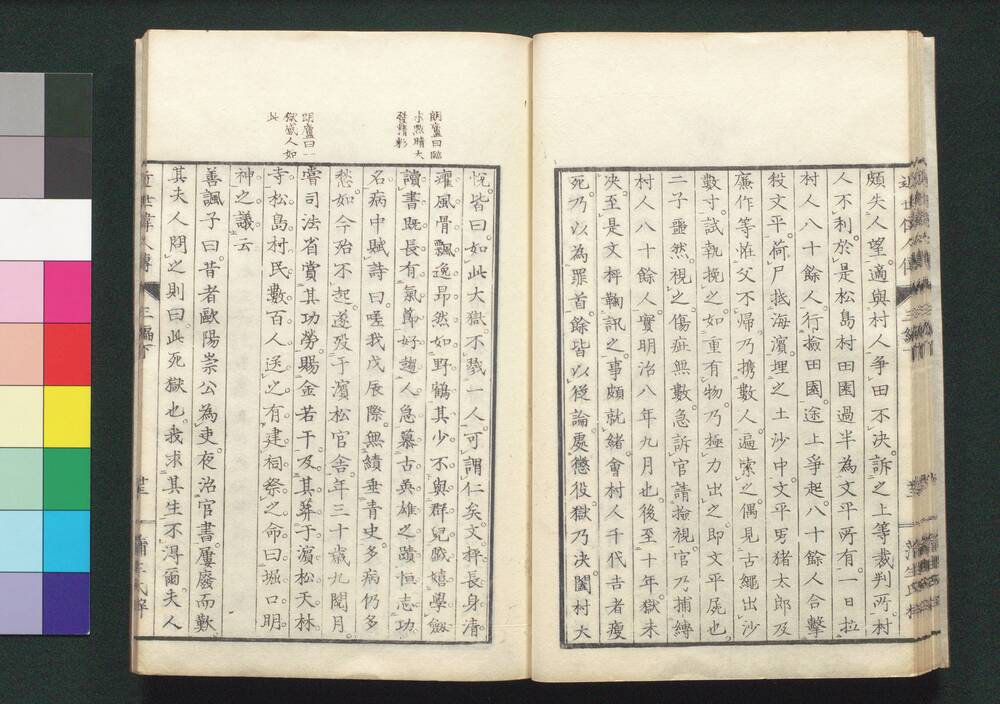 頗失人望。適與村人爭田不決。訴之上等裁判所。村
人不利。於是松島村田園過半為文平所有。一日拉
村人八十餘人。行撿田園。途上爭起。八十餘人合擊
殺文平。荷尸抵海濱埋之土沙中。文平男猪太郎及
廉作等恠父不歸。乃携數人。遍索之。偶見古繩出沙
數寸。試執挽之。如重有物。乃極力出之。即文平屍也。
二子噩然。視之傷疵無數。急訴官請撿視。官乃捕縛
村人八十餘人。實明治八年九月也。後至十年。獄未
決。至是文枰鞠訊之。事頗就緒。會村人千代吉者瘦
死。乃以為罪首。餘皆以從論。處懲役。獄乃決。闔村大
悅。皆曰。如此大獄不戮一人。可謂仁矣。文枰長身清
癯。風骨飄逸。昂然如野鶴。其少不與群兒戲嬉。學劔
讀書。既長有氣節。好趨人急。慕古英雄之蹟。恒志功
名。病中賦詩曰。嗟我戊辰際。無績垂青史。多病仍多
愁。如今殆不起。遂歿于濱松官舍。年三十歲九閱月。
嘗司法省賞其功勞。賜金若干。及其葬于濱松天林
寺。松島村民數百人送之。有建祠祭之。命曰堀口明
神之議云
善諷子曰。昔者歐陽崇公為吏。夜治官書。屢廢而歎
其夫人問之。則曰。此死獄也。我求其生不得爾。夫人
朗廬曰臨
末點睛大
發精彩
朗廬曰一
獄感人如
此
近世偉人傳
三編下
蒲生氏梓